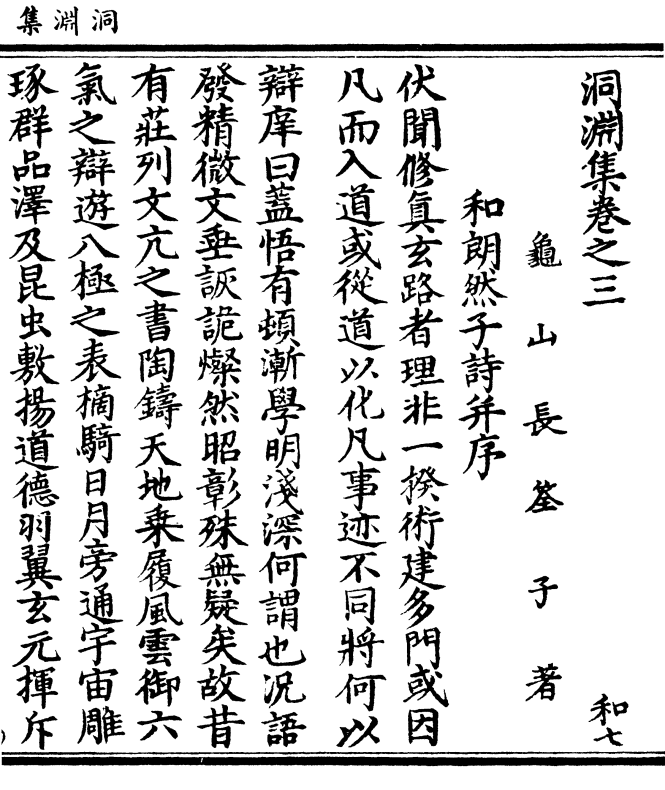 洞淵集
洞淵集卷之三
龜山長筌子著
和七
和朗然子詩并序
伏聞修真玄路者理非一揆術建多門或因
凡而入道或從道以化凡事迹不同將何以
辯庠曰蓋悟有頓漸學明淺深何謂也況語
發精微文垂詼詭燦然昭彰殊無疑矣故昔
有莊列文亢之書陶鑄天地乗履風雲御六
氣之辯遊八極之表摘騎日月旁通宇宙雕
琢群品澤及昆虫敷揚道德羽翼玄元揮斥